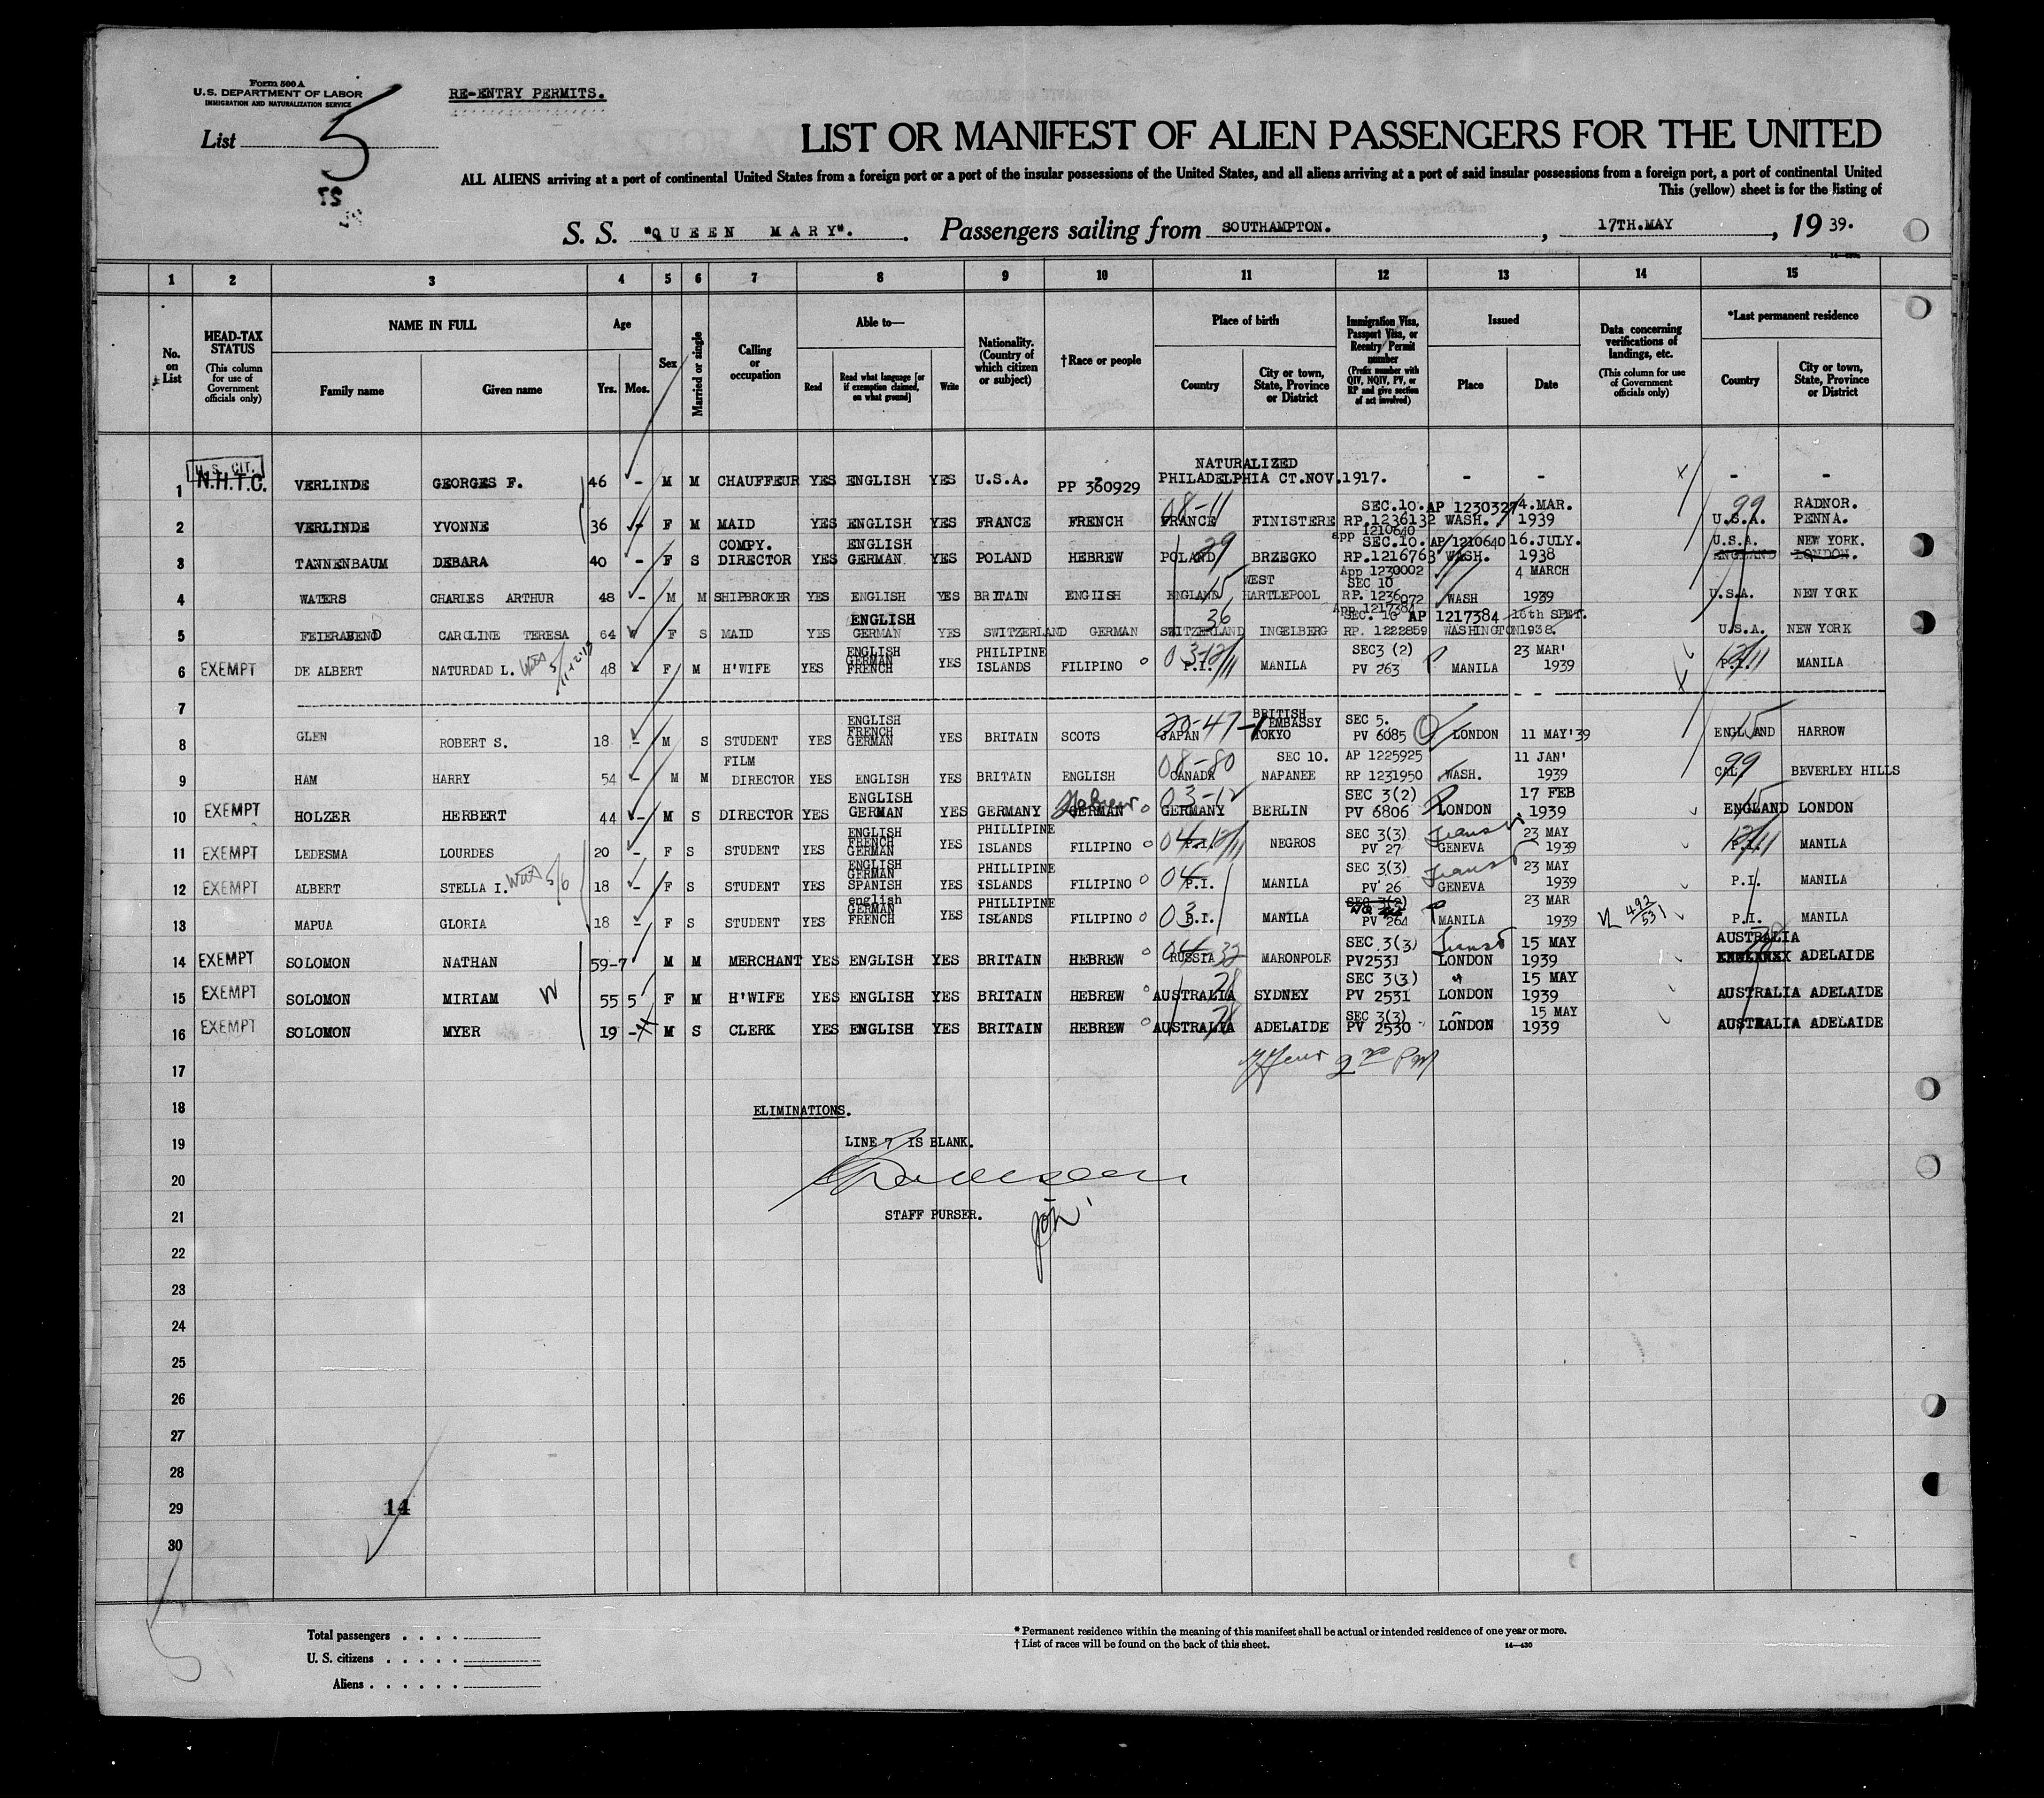 Form 500 A
U. S. DEPARTMENT OF LABOR
IMMIGRATION AND NATURALIZATION SERVICE
RE-ENTRY PERMITS.
List 5
27
LIST OR MANIFEST OF ALIEN PASSENGERS FOR THE UNITED
ALL ALIENS arriving at a port of continental United States from a foreign port or a port of the insular possessions of the United States, and all aliens arriving at a port of said insular possessions from a foreign port, a port of continental United
This (yellow) sheet is for the listing of
S. S. "QUEEN MARY". Passengers sailing from SOUTHAMPTON. , 17TH.MAY , 19 39.
1 2 3 4 5 6 7 8 9 10 11 12 13 14 15
No. on List
HEAD-TAX STATUS (This column for use of Government officials only)
NAME IN FULL Family name Given name
Age Yrs. Mos.
Sex
Married or single
Calling or occupation
Able to— Read Read what language [or if exemption claimed, on what ground] Write
Nationality. (Country of which citizen or subject)
†Race or people
Place of birth Country City or town, State, Province or District
Immigration Visa, Passport Visa, or Reentry Permit number (Prefix number with QIV, NQIV, PV, or RP and give section of act involved)
Issued Place Date
Data concerning verifications of landings, etc. (This column for use of Government officials only)
*Last permanent residence Country City or town, State, Province or District
1 U.S. CIT. N.H.T.C. VERLINDE GEORGES F. 46 - M M CHAUFFEUR YES ENGLISH YES U.S.A. - PP 360929 NATURALIZED PHILADELPHIA CT.NOV.1917. - - - -
2 VERLINDE YVONNE 36 - F M MAID YES ENGLISH YES FRANCE FRENCH 08-11 FRANCE FINISTERE SEC.10. AP 1230327 RP.1236132 WASH. 4.MAR. 1939 99 U.S.A. RADNOR. PENNA.
3 TANNENBAUM DEBARA 40 - F S COMPY. DIRECTOR YES ENGLISH GERMAN YES POLAND HEBREW POLAND 29 BRZEGKO app 1210640 SEC.10. AP 1210640 RP.1216763 WASH. 16.JULY. 1938 U.S.A. ENGLAND NEW YORK. LONDON.
4 WATERS CHARLES ARTHUR 48 - M M SHIPBROKER YES ENGLISH YES BRITAIN ENGLISH ENGLAND 15 WEST HARTLEPOOL App 1230002 SEC 10 RP. 1236072 WASH 4 MARCH 1939 U.S.A. NEW YORK
5 FEIERABEND CAROLINE TERESA 64 F S MAID YES ENGLISH GERMAN YES SWITZERLAND GERMAN 36 SWITZERLAND INGELBERG App 1217384 SEC. 10 AP 1217384 RP. 1222859 WASHINGTON 16th SPET. 1938. U.S.A. NEW YORK
6 EXEMPT DE ALBERT NATURDAD L. 48 F M H'WIFE YES ENGLISH GERMAN FRENCH YES PHILIPINE ISLANDS FILIPINO 03-12/11 P.I. MANILA SEC3 (2) PV 263 MANILA 23 MAR' 1939 12/11 P.I. MANILA
7
8 GLEN ROBERT S. 18 - M S STUDENT YES ENGLISH FRENCH GERMAN YES BRITAIN SCOTS 20-47-1 JAPAN BRITISH EMBASSY TOKYO SEC 5. PV 6085 LONDON 11 MAY'39 15 ENGLAND HARROW
9 HAM HARRY 54 - M M FILM DIRECTOR YES ENGLISH YES BRITAIN ENGLISH 08-80 CANADA NAPANEE SEC 10. AP 1225925 RP 1231950 WASH. 11 JAN' 1939 99 CAL BEVERLEY HILLS
10 EXEMPT HOLZER HERBERT 44 - M S DIRECTOR YES ENGLISH GERMAN YES GERMANY GERMAN Hebrew 03-12 GERMANY BERLIN SEC 3(2) PV 6806 LONDON 17 FEB 1939 15 ENGLAND LONDON
11 EXEMPT LEDESMA LOURDES 20 - F S STUDENT YES ENGLISH FRENCH GERMAN YES PHILLIPINE ISLANDS FILIPINO 04 12/11 P.I. NEGROS SEC 3(3) PV 27 Transt GENEVA 23 MAY 1939 12/11 P.I. MANILA
12 EXEMPT ALBERT STELLA I. 5/6 18 - F S STUDENT YES ENGLISH GERMAN SPANISH YES PHILLIPINE ISLANDS FILIPINO 04 P.I. MANILA SEC 3(3) PV' 26 Transt GENEVA 23 MAY 1939 P.I. MANILA
13 MAPUA GLORIA 18 - F S STUDENT YES english GERMAN FRENCH YES PHILLIPINE ISLANDS FILIPINO 03 P.I. MANILA SEC 3(2) PV 264 MANILA 23 MAR 1939 VL 492/531 P.I. MANILA
14 EXEMPT SOLOMON NATHAN 59-7 M M MERCHANT YES ENGLISH YES BRITAIN HEBREW 04 32 RUSSIA MARONPOLE SEC 3(3) PV2531 Transt LONDON 15 MAY 1939 AUSTRALIA ADELAIDE
15 EXEMPT SOLOMON MIRIAM W 55 5 F M H'WIFE YES ENGLISH YES BRITAIN HEBREW AUSTRALIA 28 SYDNEY SEC 3(3) PV 2531 " LONDON 15 MAY 1939 AUSTRALIA ADELAIDE
16 EXEMPT SOLOMON MYER 19 - M S CLERK YES ENGLISH YES BRITAIN HEBREW AUSTRALIA 28 ADELAIDE SEC 3(3) PV 2530 " LONDON 15 MAY 1939 AUSTRALIA ADELAIDE
17
18 ELIMINATIONS.
19 LINE 7 IS BLANK.
20
21 STAFF PURSER.
22
23
24
25
26
27
28
29 14
30
Total passengers . . . .
U. S. citizens . . . . .
Aliens . . . . . .
* Permanent residence within the meaning of this manifest shall be actual or intended residence of one year or more.
† List of races will be found on the back of this sheet. 14—430